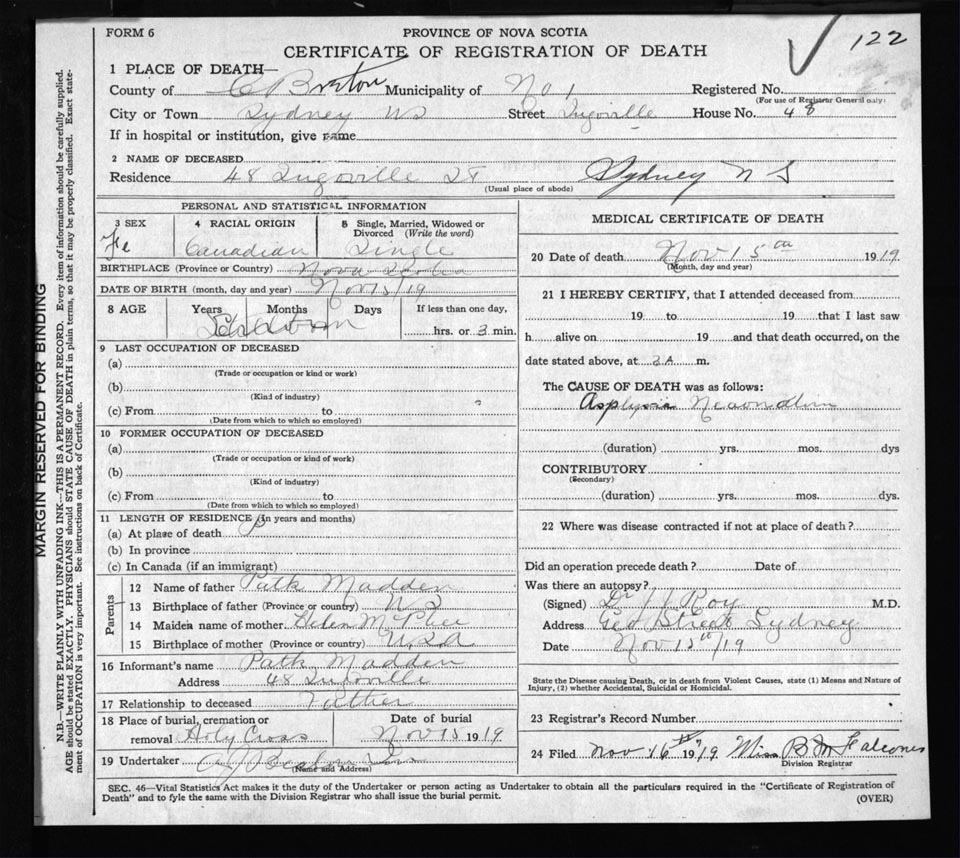 FORM 6
PROVINCE OF NOVA SCOTIA
122
CERTIFICATE OF REGISTRATION OF DEATH
1 PLACE OF DEATH—
County of C Breton Municipality of No 1 Registered No.
(For use of Registrar General only)
City or Town Sydney NS Street House No. 48
If in hospital or institution, give name
2 NAME OF DECEASED
Residence 48 St Sydney N S
(Usual place of abode)
PERSONAL AND STATISTICAL INFORMATION
3 SEX 4 RACIAL ORIGIN 5 Single, Married, Widowed or Divorced (Write the word)
Fe Canadian Single
BIRTHPLACE (Province or Country) Nova Scotia
DATE OF BIRTH (month, day and year) Nov 15/19
8 AGE Years Months Days If less than one day,
hrs. or 3 min.
9 LAST OCCUPATION OF DECEASED
(a)
(Trade or occupation or kind or work)
(b)
(Kind of industry)
(c) From to
(Date from which to which so employed)
10 FORMER OCCUPATION OF DECEASED
(a)
(Trade or occupation or kind of work)
(b)
(Kind of industry)
(c) From to
(Date from which to which so employed)
11 LENGTH OF RESIDENCE (In years and months)
(a) At place of death
(b) In province
(c) In Canada (if an immigrant)
Parents
12 Name of father Patk Madden
13 Birthplace of father (Province or country) N S
14 Maiden name of mother Helen McPhee
15 Birthplace of mother (Province or country) U.S.A
16 Informant's name Patk Madden
Address 48
17 Relationship to deceased Father
18 Place of burial, cremation or removal Holy Cross Date of burial Nov 15 1919
19 Undertaker
(Name and Address)
MEDICAL CERTIFICATE OF DEATH
20 Date of death Nov 15th 1919
(Month, day and year)
21 I HEREBY CERTIFY, that I attended deceased from
19 to 19 that I last saw
h alive on 19 and that death occurred, on the
date stated above, at 3 A m.
The CAUSE OF DEATH was as follows:
(duration) yrs. mos. dys
CONTRIBUTORY
(Secondary)
(duration) yrs. mos. dys.
22 Where was disease contracted if not at place of death?
Did an operation precede death? Date of
Was there an autopsy?
(Signed) Dr J J Roy M.D.
Address Geo Street Sydney
Date Nov 15th/19
State the Disease causing Death, or in death from Violent Causes, state (1) Means and Nature of Injury, (2) whether Accidental, Suicidal or Homicidal.
23 Registrar's Record Number
24 Filed Nov 16th 1919 Miss B M Falconer
Division Registrar
SEC. 46—Vital Statistics Act makes it the duty of the Undertaker or person acting as Undertaker to obtain all the particulars required in the "Certificate of Registration of
Death" and to fyle the same with the Division Registrar who shall issue the burial permit.
(OVER)
MARGIN RESERVED FOR BINDING
N.B.—WRITE PLAINLY WITH UNFADING INK—THIS IS A PERMANENT RECORD. Every item of information should be carefully supplied.
AGE should be stated EXACTLY. PHYSICIANS should STATE CAUSE OF DEATH in plain terms, so that it may be properly classified. Exact state-
ment of OCCUPATION is very important. See instructions on back of Certificate.